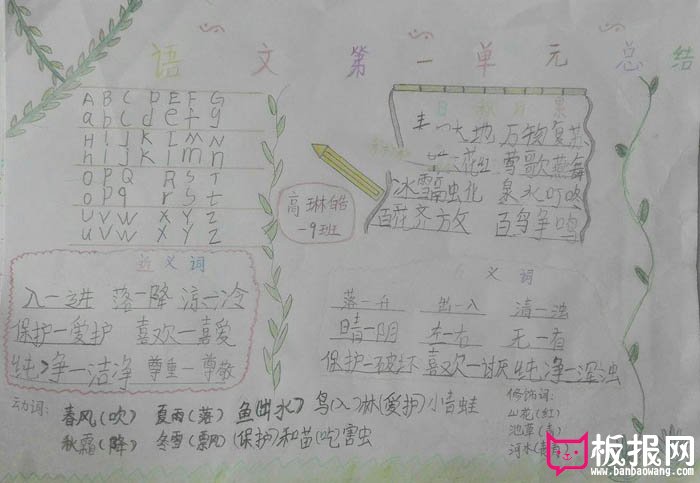 语文第一单元总结
A B C D E F G
a b c d e f g
H I J K L M N
h i j k l m n
O P Q R S T
o p q r s t
U V W X Y Z
u v w x y z
高琳皓
一9班
日积月累
大地 万物复苏
花红 莺歌燕舞
冰雪融化 泉水叮咚
百花齐放 百鸟争鸣
近义词
入一进 落一降 凉一冷
保护一爱护 喜欢一喜爱
纯净一洁净 尊重一尊敬
义词
落一升 出一入 清一浊
晴一阴 左一右 无一有
保护一破坏 喜欢一讨厌 纯净一浑浊
动词:
春风(吹) 夏雨(落) 鱼(出水) 鸟(入)林(爱护)小青蛙
秋霜(降) 冬雪(飘) (保护)和苗(吃)害虫
修饰词:
山花(红)
池草(青)
河水
板报网
www.banbaowang.com